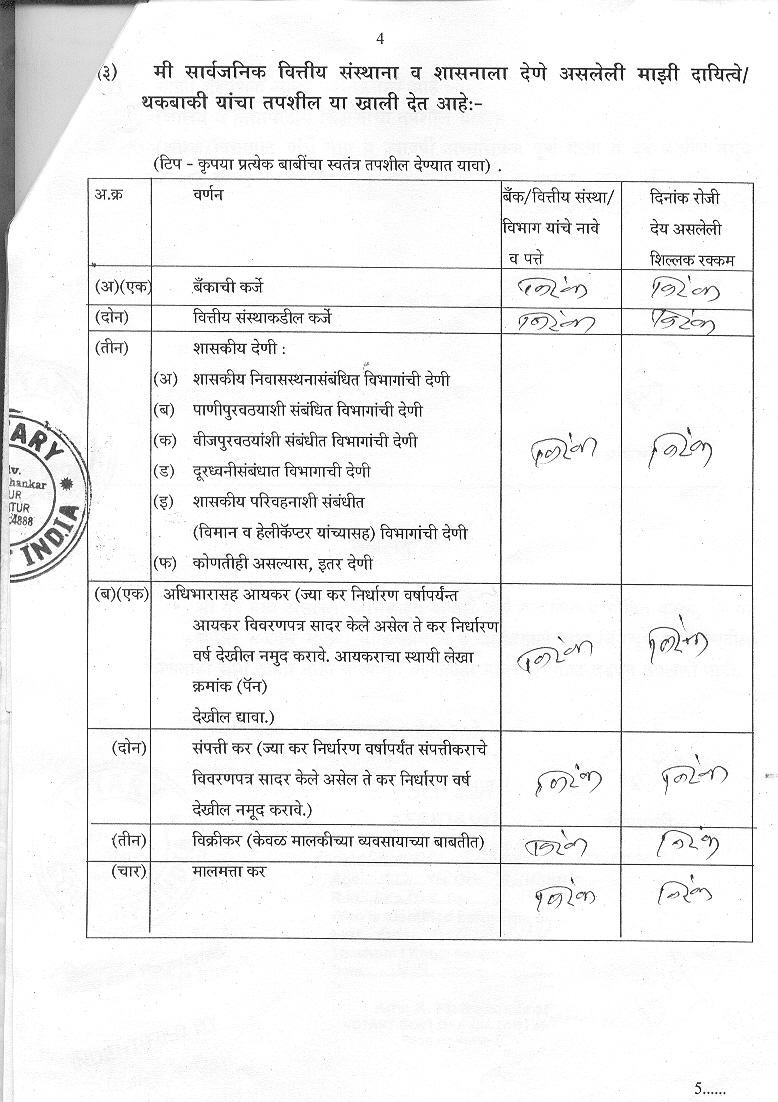 4
(३) मी सार्वजनिक वित्तीय संस्थाना व शासनाला देणे असलेली माझी दायित्वे/
थकबाकी यांचा तपशील या खाली देत आहेः-
(टिप - कृपया प्रत्येक बाबींचा स्वतंत्र तपशील देण्यात यावा) .
अ.क्र वर्णन बँक/वित्तीय संस्था/ दिनांक रोजी
विभाग यांचे नावे देय असलेली
व पत्ते शिल्लक रक्कम
(अ)(एक) बँकाची कर्जे निरंक निरंक
(दोन) वित्तीय संस्थाकडील कर्जे निरंक निरंक
(तीन) शासकीय देणी :
(अ) शासकीय निवासस्थनासंबंधित विभागांची देणी
(ब) पाणीपुरवठयाशी संबंधित विभागांची देणी
(क) वीजपुरवठयांशी संबंधीत विभागांची देणी निरंक निरंक
(ड) दूरध्वनीसंबधात विभागाची देणी
(इ) शासकीय परिवहनाशी संबंधीत
(विमान व हेलीकॅप्टर यांच्यासह) विभागांची देणी
(फ) कोणतीही असल्यास, इतर देणी
(ब)(एक) अधिभारासह आयकर (ज्या कर निर्धारण वर्षापर्यंन्त
आयकर विवरणपत्र सादर केले असेल ते कर निर्धारण
वर्ष देखील नमुद करावे. आयकराचा स्थायी लेखा निरंक निरंक
क्रमांक (पॅन)
देखील द्यावा.)
(दोन) संपत्ती कर (ज्या कर निर्धारण वर्षापर्यंत संपत्तीकराचे
विवरणपत्र सादर केले असेल ते कर निर्धारण वर्ष निरंक निरंक
देखील नमूद करावे.)
(तीन) विक्रीकर (केवळ मालकीच्या व्यवसायाच्या बाबतीत) निरंक निरंक
(चार) मालमत्ता कर निरंक निरंक
INDIA
5......